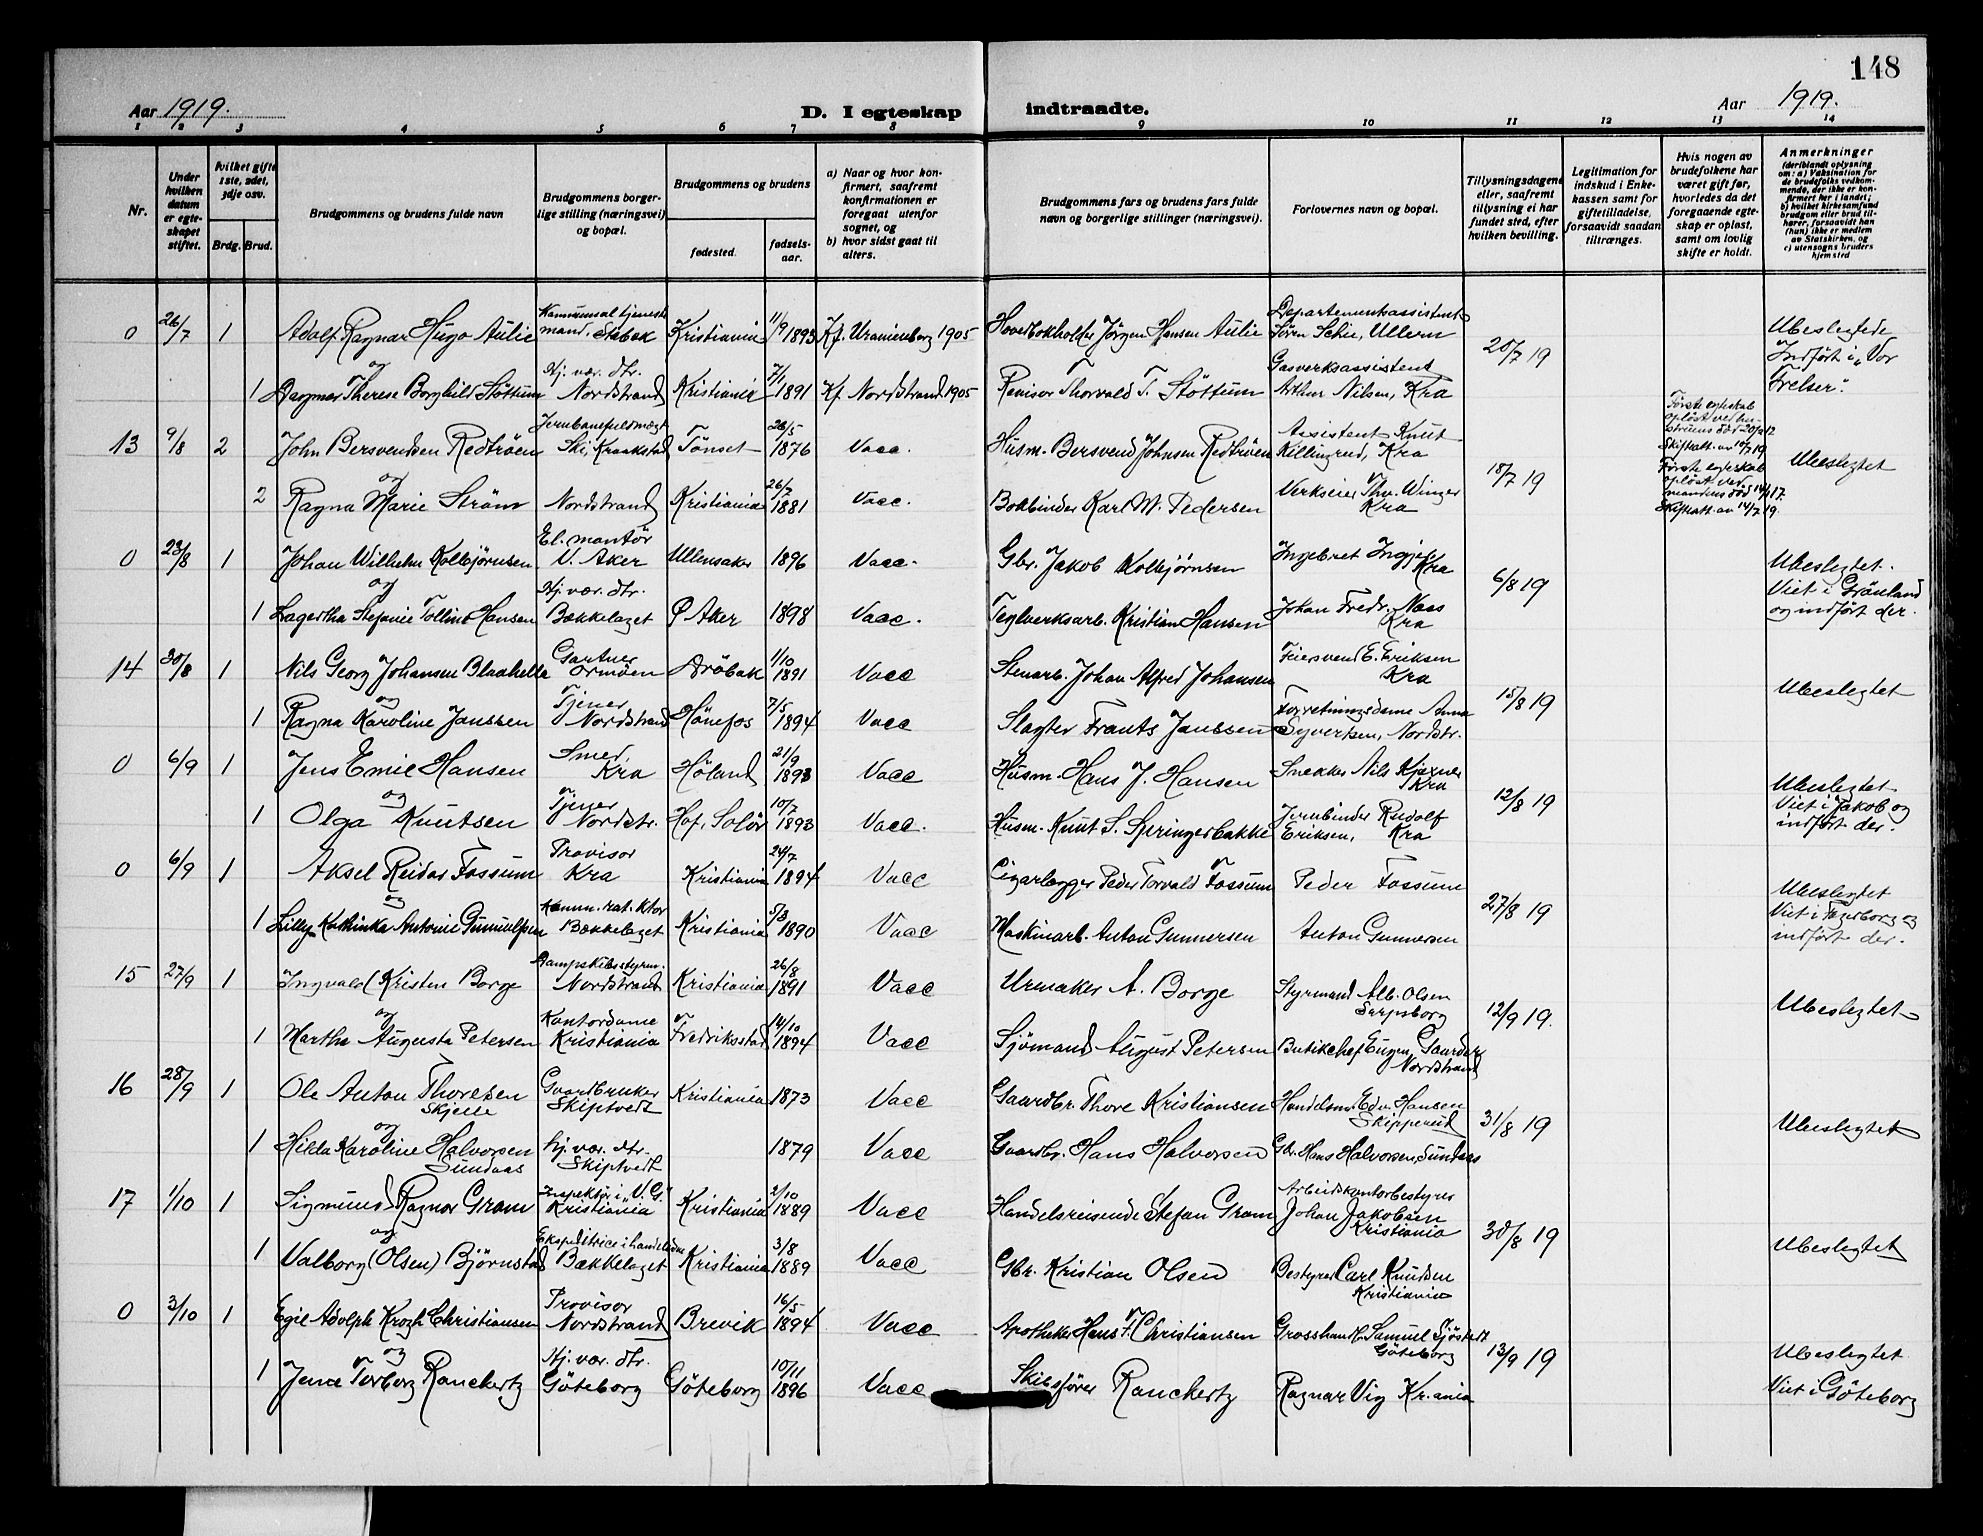 148
Aar 1919.
D. I egteskap
indtraadte.
Aar 1919.
1 2 3 4 5 6 7 8 9 10 11 12 13 14
Nr.
Under hvilken datum er egteskapet stiftet.
Hvilket gifte 1ste, 2det, 3dje osv.
Brdg. Brud.
Brudgommens og brudens fulde navn
Brudgommens borgerlige stilling (næringsvei) og bopæl.
Brudgommens og brudens
fødested.
fødselsaar.
a) Naar og hvor konfirmert, saafremt konfirmationen er foregaat utenfor sognet, og
b) hvor sidst gaat til alters.
Brudgommens fars og brudens fars fulde navn og borgerlige stillinger (næringsvei).
Forlovernes navn og bopæl.
Tillysningsdagene eller, saafremt tillysning ei har fundet sted, efter hvilken bevilling.
Legitimation for indskud i Enkekassen samt for giftetilladelse, forsaavidt saadan tiltrænges.
Hvis nogen av brudefolkene har været gift før, hvorledes da det foregaaende egteskap er opløst, samt om lovlig skifte er holdt.
Anmerkninger
(deriblandt oplysning om: a) Vaksination for de brudefolks vedkommende, der ikke er konfirmert her i landet; b) hvilket kirkesamfund brudgom eller brud tilhører, forsaavidt han (hun) ikke er medlem av Statskirken, og c) utensogns bruders hjemsted
0 26/7 1 Adolf Ragnar Hugo Aulie Kommunal tjenestemand, Stabek Kristiania 11/9 1893 Kf. Uranienborg 1905 Hovedbokholder Jörgen Hansen Aulie Departementsassistent Sören Schie, Ullern 20/7 19 Ubeslegtede Indført i "Vor Frelser".
og
1 Dagmar Therese Borghild Støttum Hj. vær. dtr. Nordstrand Kristiania 7/1 1891 Kf. Nordstrand 1905 Revisor Thorvald T. Støttum Gasverksassistent Arthur Nilsen, Kra
13 9/8 2 John Bersvendsen Redtrøen Jernbanefuldmægt. Ski, Kraakstad Tønset 26/5 1876 Vacc. Husm. Bersvend Johnsen Redtrøen Assistent Knut Killingrud, Kra 18/7 19 Første egteskab opløst ved hustruens död 20/9 12 Skifteatt. av 10/7 19 Ubeslegtet
og
2 Ragna Marie Strøm Nordstrand Kristiania 26/7 1881 Vacc. Bokbinder Karl M. Pedersen Verkseier Thv. Winger Kra Første egteskab opløst ved mandens död 14/1 17. Skifteatt. av 14/7 19.
0 23/8 1 Johan Wilhelm Kolbjørnsen El. montør V. Aker Ullensaker 1896 Vacc. Gbr. Jakob Kolbjørnsen Ingebret Kra 6/8 19 Ubeslegtet. Viet i Grønland og indført der.
og
1 Lagertha Stefanie Tolline Hansen Hj. vær. dtr. Bækkelaget Ø Aker 1898 Vacc. Teglverksarb. Kristian Hansen Johan Fredr. Næss Kra
14 30/8 1 Nils Georg Johansen Blaahella Gartner Ormøen Drøbak 1/10 1891 Vacc Stenarb. Johan Alfred Johansen Feiersvend E. Eriksen Kra 15/8 19 Ubeslegtet
og
1 Ragna Karoline Janssen Tjener Nordstrand Hönefos 7/5 1894 Vacc Slagter Frants Janssen Forretningsdame Anna Syvertsen, Nordstr.
0 6/9 1 Jens Emil Hansen Smed Kra Höland 21/9 1893 Vacc Husm. Hans J. Hansen Snekker Nils Kjexner Kra 12/8 19 Ubeslegtet Viet i Jakob og indført der.
og
1 Olga Knutsen Tjener Nordstr. Hof, Solör 10/7 1893 Vacc. Husm. Knut S. Springerbakke Jernbinder Rudolf Eriksen, Kra
0 6/9 1 Aksel Reidar Fossum Provisor Kra Kristiania 24/7 1894 Vacc Cigarlægger Peder Torvald Fossum Peder Fossum 27/8 19 Ubeslegtet Viet i Fagerborg og indført der.
og
1 Lilly Kathinka Antonie Bækkelaget Kristiania 5/3 1890 Vacc Maskinarb. Anton Gunnersen Anton Gunnersen
15 27/9 1 Ingvald Kristen Borge Dampskibsstyrm. Nordstrand Kristiania 26/8 1891 Vacc Urmaker A. Borge Styrmand Alb. Olsen Sarpsborg 12/9 19. Ubeslegtet
og
1 Martha Augusta Petersen Kontordame Kristiania Fredriksstad 14/10 1894 Vacc Sjömand August Petersen Butikchef Eugen Gaarder Nordstrand
16 28/9 1 Ole Anton Thoresen Skjelle Gaardbruker Skiptvedt Kristiania 1873 Vacc Gaardbr. Thore Kristiansen Handelsm. Edv. Hansen Skipperud 31/8 19 Ubeslegtet
og
1 Hilda Karoline Halvorsen Sundaas hj. vær. dtr. Skiptvedt 1879 Vacc Gaardbr. Hans Halvorsen Gbr. Hans Halvorsen Sundaas
17 1/10 1 Sigmund Ragnar Gram Inspektør i "V.G." Kristiania Kristiania 2/10 1889 Vacc Handelsreisende Stefan Gram Arbeidskontorbestyrer Johan Jakobsen Kristiania 30/8 19 Ubeslegtet
og
1 Valborg (Olsen) Björnstad Ekspeditrice i Bækkelaget Kristiania 3/8 1889 Vacc Gbr. Kristian Olsen Bestyrer Carl Knudsen Kristiania
0 3/10 1 Egil Adolph Krogh Christiansen Provisor Nordstrand Brevik 16/5 1894 Vacc Apotheker Hans F. Christiansen Grosshandl. Samuel Sjöstedt Göteborg 13/9 19 Ubeslegtet Viet i Göteborg
og
1 Torborg Ranckertz Hj. vær. dtr. Göteborg Göteborg 10/11 1896 Vacc Skibsfører Ranckertz Ragnar Vig Kr.ania